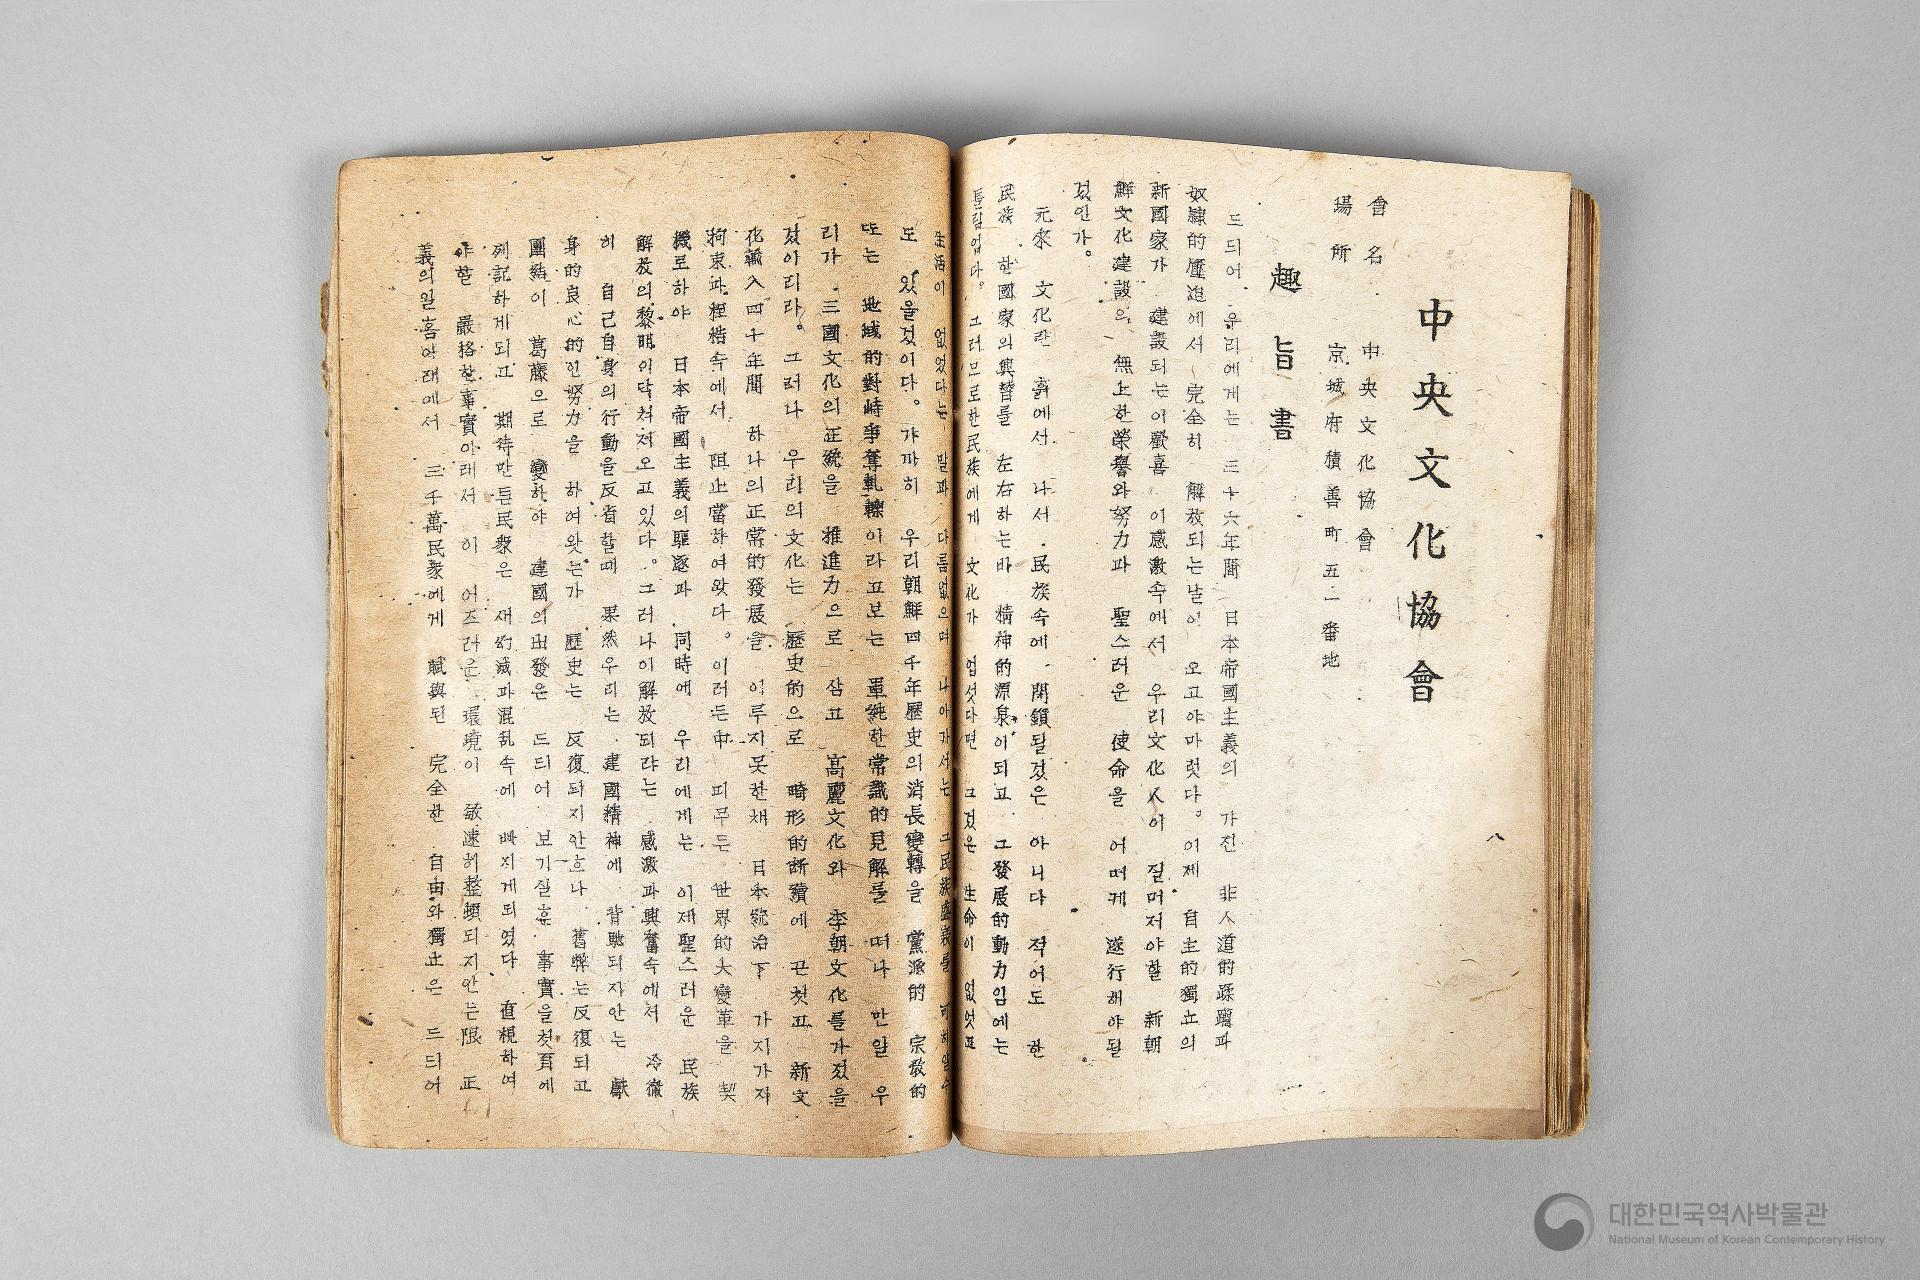 中央文化協會
會名. 中央文化協會
場所 京城府積善町五一番地
趣旨書
드듸어. 우리에게는 三十六年間 日本帝國主義의 가진 非人道的蹂躪과
奴隸的壓迫에서 完全히 解放되는날이 오고야마럿다. 이제 自主的獨立의
新國家가 建設되는이歡喜 이感激속에서 우리文化人이 질머저야할 新朝
鮮文化建設의 無上한榮譽와努力과 聖스러운 使命을 어떠케 遂行해야될
것인가.
元來 文化란 흙에서 나서. 民族속에 閉鎖될것은 아니다 적어도 한
民族 한國家의興替를 左右하는바 精神的源泉이되고 그發展的動力임에는
틀림업다. 그러므로한民族에게 文化가 업섯다면 그것은 生命이 없엇고
生活이 없었다는 말과 다름없으며 나아가서는 그民族盛衰를
도 있을것이다. 가까히 우리朝鮮四千年歷史의消長變轉을 黨派的 宗敎的
또는 地域的對峙爭奪軋轢이라고보는 單純한常識的見解를 떠나 만일 우
리가. 三國文化의正統을 推進力으로 삼고 高麗文化와 李朝文化를가젓을
것이리라. 그러나 우리의文化는 歷史的으로 畸形的斷續에 끈첫고 新文
化輸入四十年間 하나의正常的發展을 이루지못한채 日本統治下 가지가지
拘束과桎梏속에서 阻止當하여왓다. 이러든中 피무든 世界的大變革을 契
機로하야 日本帝國主義의驅逐과 同時에 우리에게는 이제聖스러운 民族
解放의黎明이닥처저오고있다. 그러나이解放되랴는 感激과興奮속에서 冷徹
히 自己自身의行動을反省할때 果然우리는 建國精神에 背馳되지안는 獻
身的良心的인努力을 하여왓는가 歷史는 反復되지안흐나 舊弊는反復되고
團結이 葛藤으로 變하야 建國의出發은 드듸어 보기실흔 事實을첫頁에
列記하게되고 期待만튼民衆은 새幻滅과混乱속에 빠지게되엿다 直視하여
야할 嚴格한事實아래서 이 어즈러운 環境이 敏速히整頓되지안는限 正
義의일홈아래에서 三千萬民衆에게 賦與된 完全한 自由와獨立은 드듸어
八
대한민국역사박물관
National Museum of Korean Contemporary History